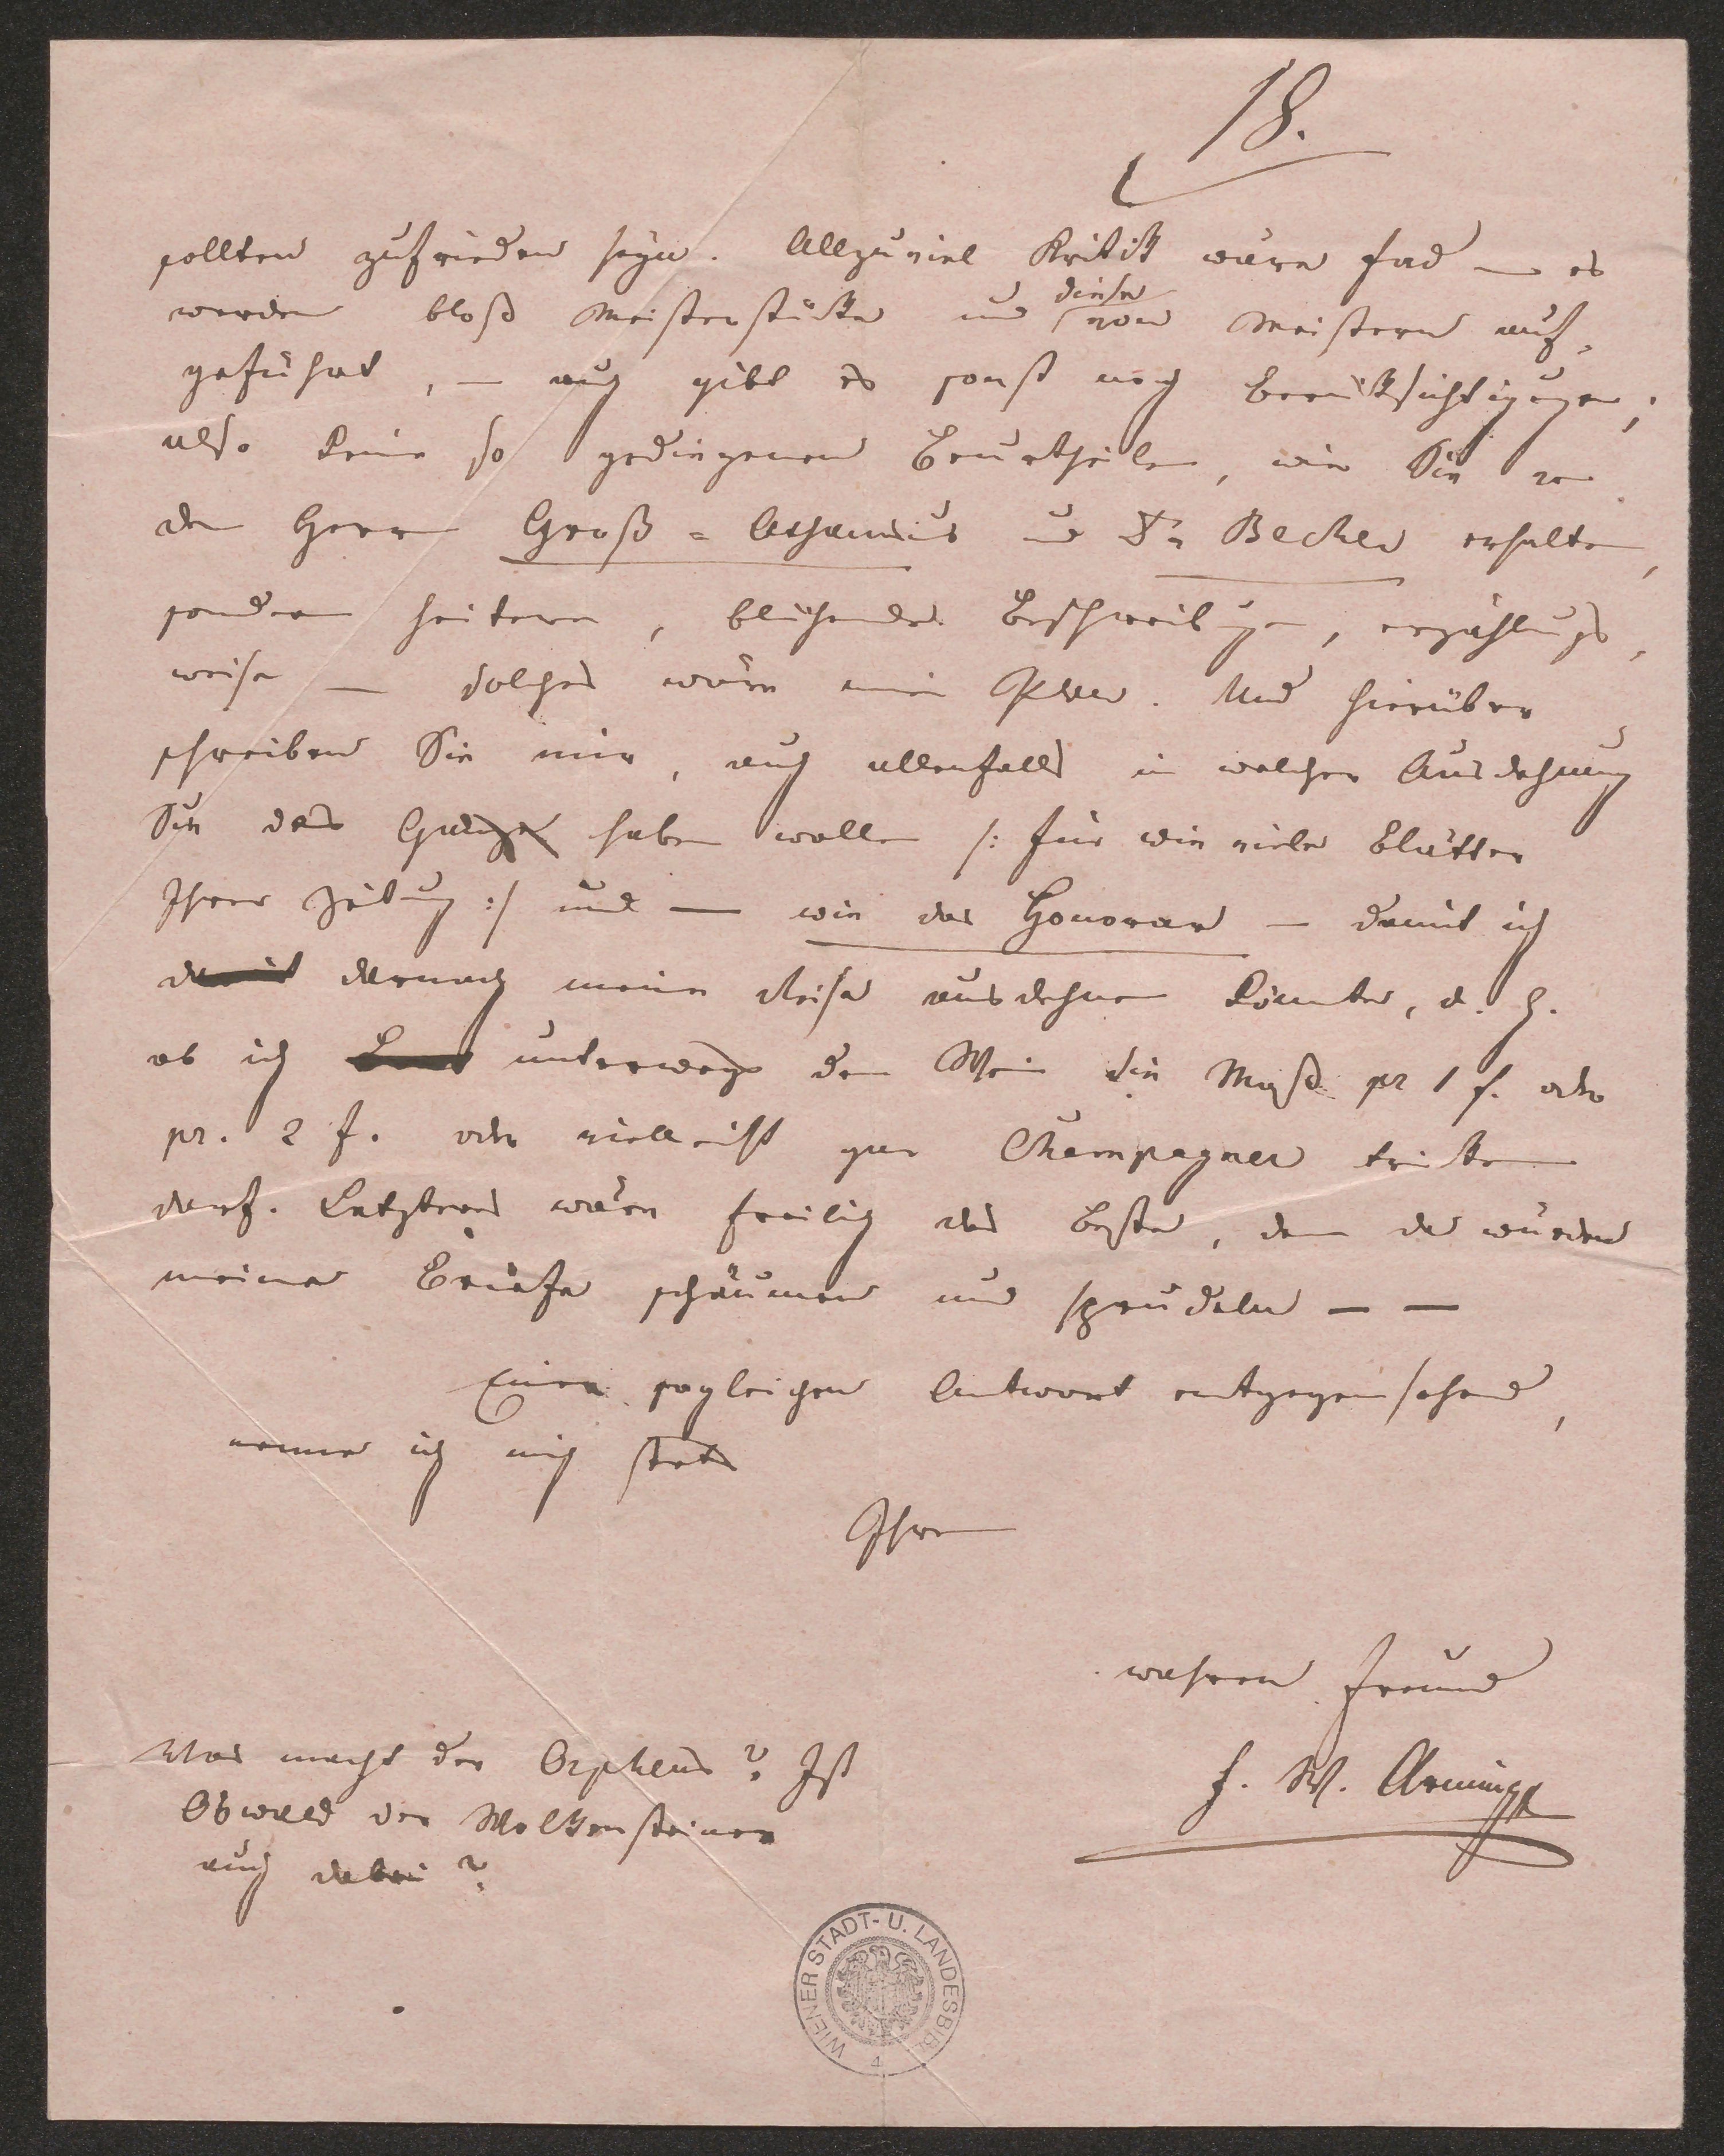 18.
sollten zufrieden seyn. Allzuviel Kritik wäre fad — es
werden bloß Meisterstücke und diese von Meistern auf-
geführt, — auch gibt es sonst noch Berücksichtigungen;
also keine so gediegenen Beurtheilen, wie Sie von
den Herrn Groß-Athanasius und Dr Becher erhalten,
sondern heitere, blühende Beschreibungen, erzählungs-
weise — solches wäre mein Plan. Und hierüber
schreiben Sie mir, auch allenfalls in welcher Ausdehnung
Sie das Ganze haben wollen /: für wie viele Blätter
Ihrer Zeitung :/ und — wie das Honorar — damit ich
damit darnach meine Reise ausdehnen könnte, d. h.
ob ich unterwegs den Wein die Maß pr 1 f. oder
pr. 2 f. oder vielleicht gar Champagner trinken
darf. Letzteres wäre freilich das Beste, denn da würden
meine Briefe schäumen und sprudeln — —
Einer sogleichen Antwort entgegensehend,
nenne ich mich stets
Ihren
wahren Freund
F. W. Arming
Was macht der Orpheus? Ist
Oswald der Wolkensteiner
auch dabei?
WIENER STADT- U. LANDESBIBL.
4